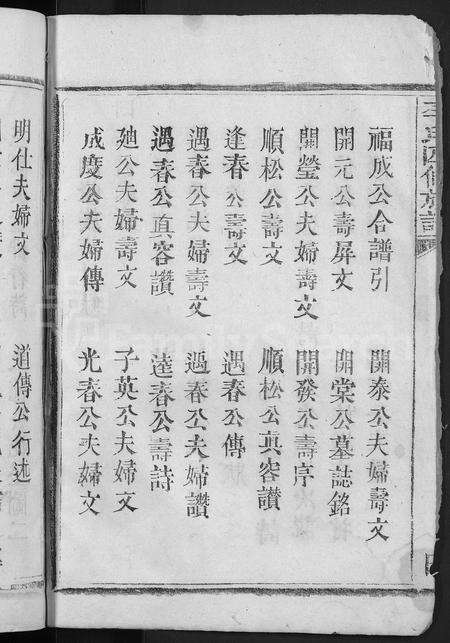 福成公合譜引
開泰公夫婦壽文
開元公壽屏文
開棠公墓誌銘
開瑩公夫婦壽文
開發公壽序
順松公壽文
順松公真容讚
逢春公壽文
遇春公傳
遇春公夫婦壽文
遇春公夫婦讚
遇春公真容讚
逵春公壽詩
廸公夫婦壽文
子英公夫婦文
成度公夫婦傳
光春公夫婦文
明仕夫婦文
道傳公行述